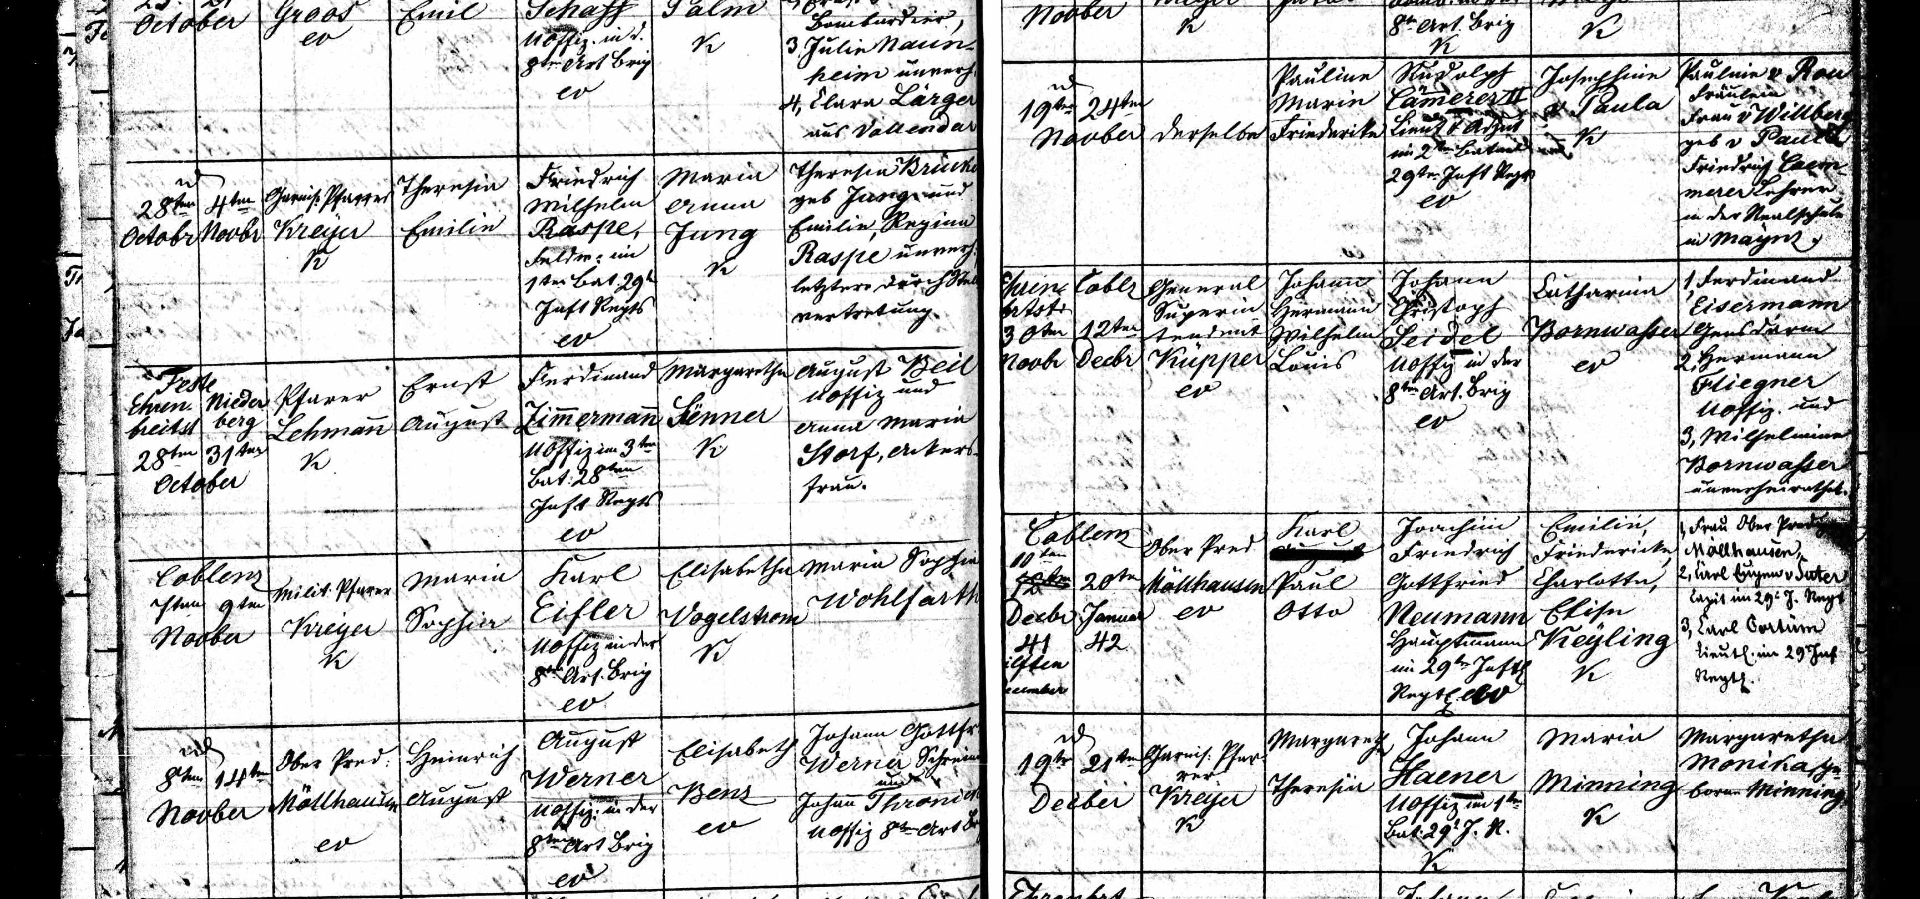 October
Groos
ev
Emil
Schaff
Uoffiz. in d.
8ten Art Brig
ev
Salm
K
Bombardier,
3 Julie Naun-
heim unverh.
4, Clara Lärger
aus Vallendar
id
28ten 4ten
Octobr Novbr
Garnis. Pfarrer
Kreyer
K
Theresia
Emilie
Friedrich
Wilhelm
Raspe,
Feldw: im
1ten Bat 29t
Inft Regts
ev
Maria
Anna
Jung
K
Theresia Brück
geb Jung und
Emilie, Regina
Raspe unverh.
letztere durch Stell
vertretung.
Feste
Ehren-
breitst
28ten
October
Nieder
berg
31ten
Pfarrer
Lehmann
K
Ernst
August
Ferdinand
Zimmermann
Uoffiz im 3ten
Bat. 28ten
Inft Regts
ev
Margaretha
Fenner
K
August Beil
Uoffiz und
Anna Maria
Storf, Ackers-
frau.
Coblenz
7ten 9ten
Novber
Milit. Pfarrer
Kreyer
K
Maria
Sophia
Karl
Eifler
Uoffiz in der
8ten Art. Brig
ev
Elisabetha
Vogelstrom
K
Maria Sophia
Wohlfarth
id
8ten 14ten
Novber
Ober Pred.
Möllhausen
ev
Heinrich
August
August
Werner
Uoffiz. in der
8ten Art Brig
ev
Elisabeth
Benz
ev
Johann Gottfr
Werner Schrein
und
Johann
Uoffiz 8ten Art Br
Novber
K
8ten Art. Brig
K
K
id
19ten 24ten
Novber
derselbe
Pauline
Marie
Friederike
Rudolph
Cämerer II
Lieut & Adjut
im 2ten Batail
29ten Inft Regts
ev
Josephine
v Paula
K
Pauline v Rou
Fräulein
Frau v Willberg
geb v Paula
Friedrich Caem-
merer Lehrer
in der Realschule
in Maynz.
Ehren-
brtst
30ten
Novbr
Coblz
12ten
Decbr
General
Superin
tendent
Küpper
ev
Johann
Hermann
Wilhelm
Louis
Johann
Christoph
Seidel
Uoffz in der
8ten Art. Brig
ev
Catharina
Bornwasser
ev
1, Ferdinand
Eisermann
Gensdarm
2, Hermann
Fliegner
Uoffiz. und
3, Wilhelmine
Bornwasser
unverheirathet.
Coblenz
10ten
Decbr
41
elften
December
20ten
Januar
42
Ober Pred
Möllhausen
ev
Karl
Paul
Otto
Joachim
Friedrich
Gottfried
Neumann
Hauptmann
im 29ten Inftl
Regtl. ev
Emilie,
Friedericke,
Charlotte,
Elise
Keyling
K
1, Frau Ober Pred
Möllhausen,
2, Carl Eugen v Suter
Capit im 29t J. Regt
3, Carl Cortüm
Lieutl. im 29 Inf
Regtl.
id
19te 21ten
Decber
Garnis. Pfar-
rer
Kreyer
K
Margareth
Theresia
Johann
Haener
Uoffiz im 1te
Bat. 29t J. R.
K
Maria
Minning
K
Margaretha
Monika ge-
borne Minning
Ehrenbrt
Johann